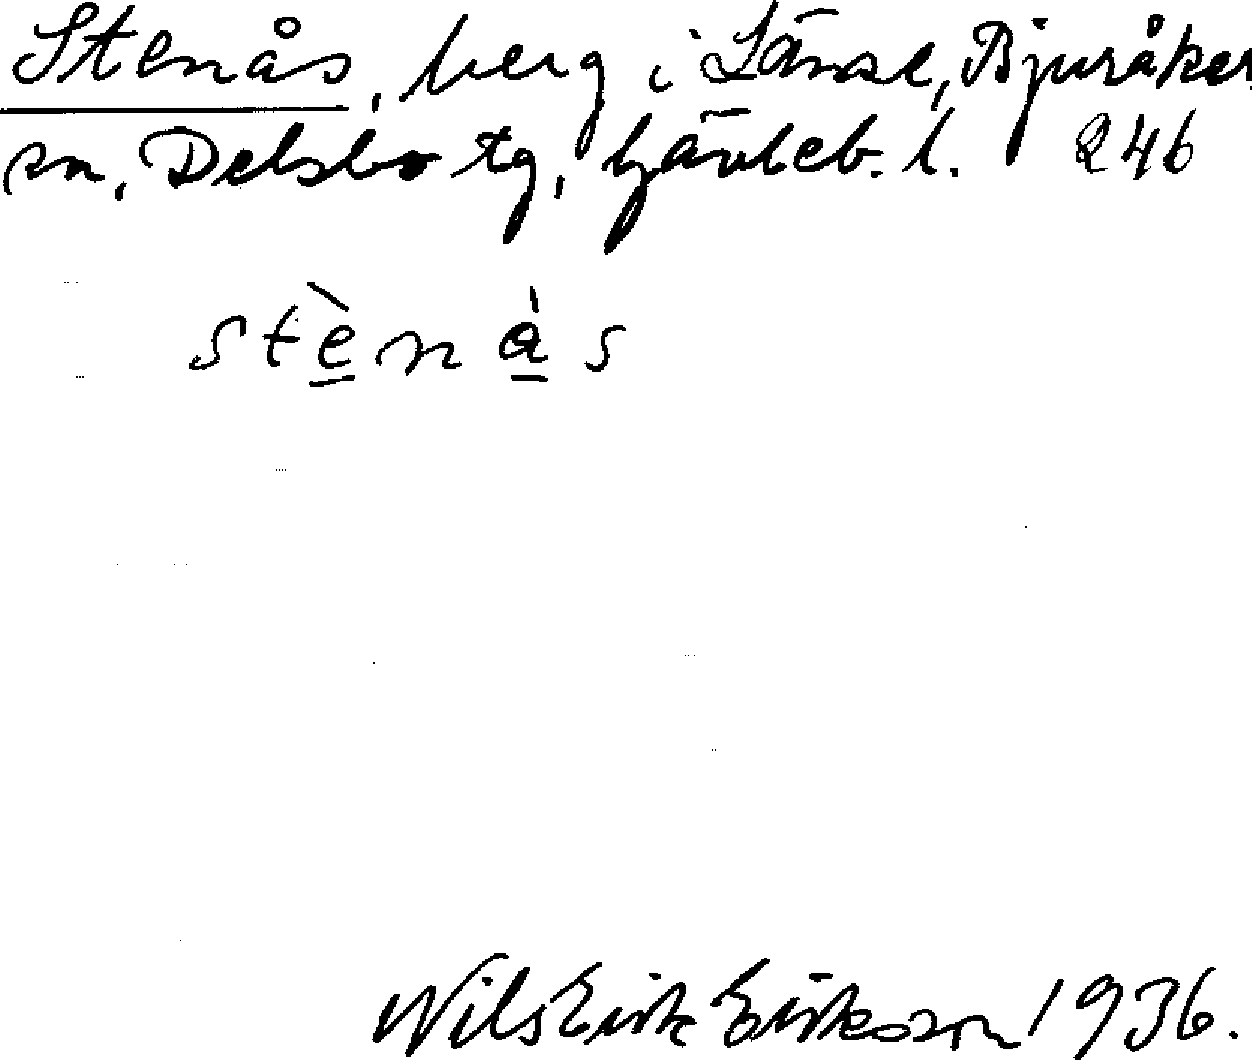 Stenås, berg i Länne, Bjuråker
sn, Delsbo tg, Gävleb. l. 246
stènàs
Nils Erik Eriksson 1936.